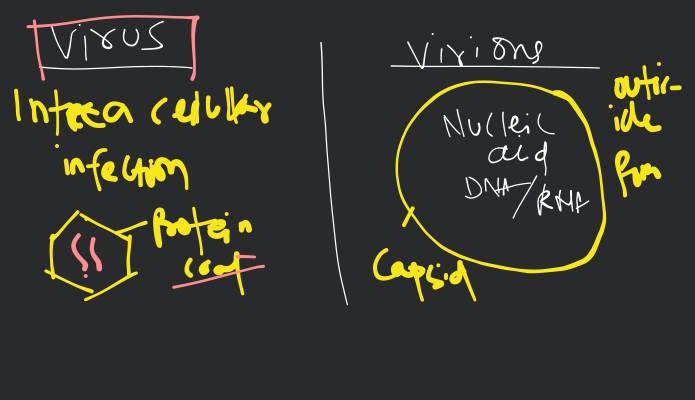 Virus
Intra cellular
infection
Protein
coat
Virions
Nucleic
acid
DNA/RNA
Capsid
outs-
ide